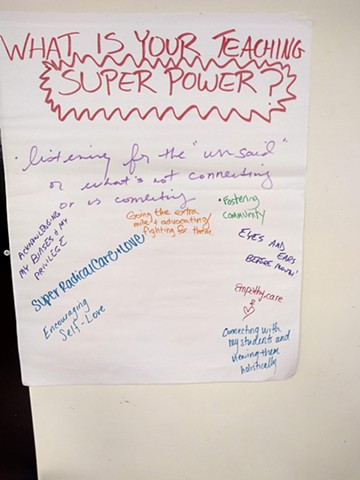 WHAT IS YOUR TEACHING
SUPER POWER?
• listening for the "un-said"
or what's not connecting
or is connecting
ACKNOWLEDGING
MY BIASES & MY
PRIVILEGE
Going the extra
mile & advocating/
fighting for them.
• Fostering
community
EYES AND EARS
BEFORE MOUTH!
Super Radical Care & Love
Encouraging
Self-Love
Empathy-care
Connecting with
my students and
viewing them
holistically